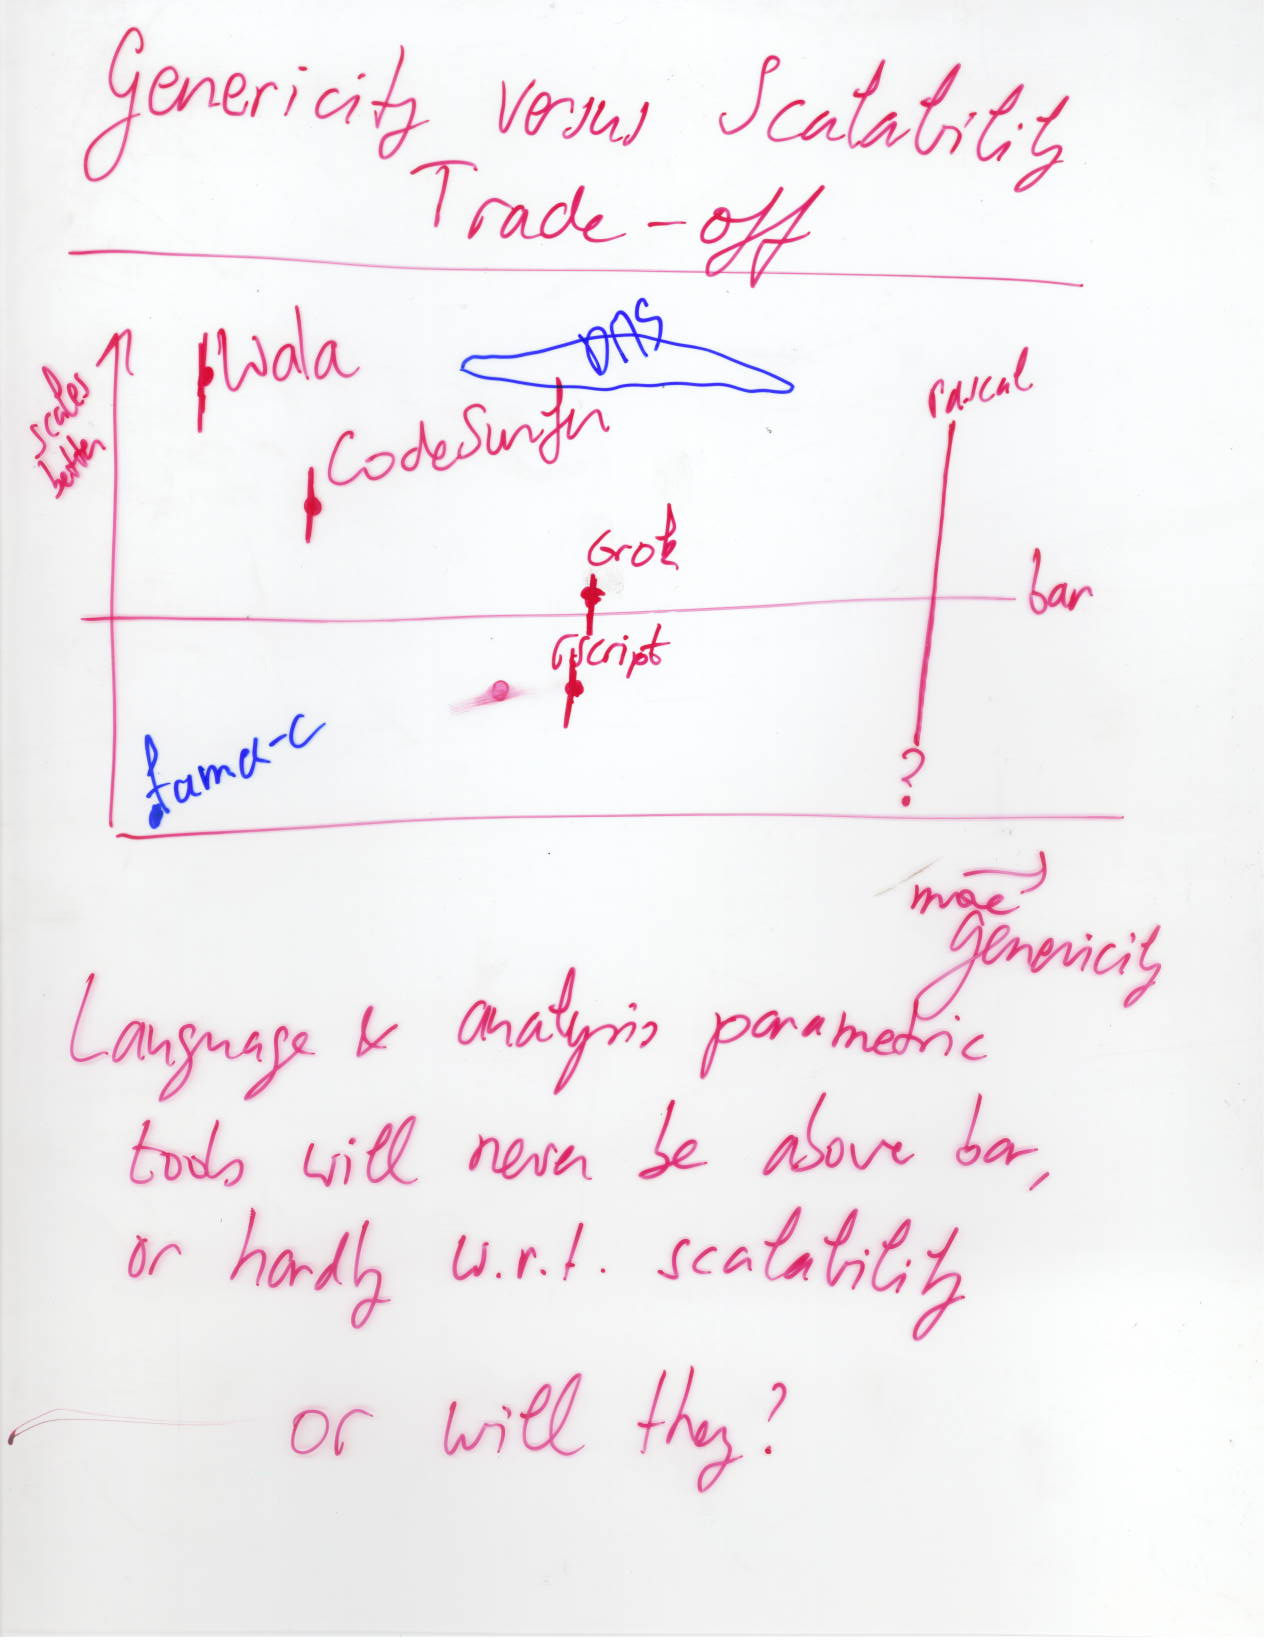 Genericity versus Scalability
Trade-off
scales
better
Wala
DMS
CodeSurfer
rascal
Grok
bar
rscript
fama-c
?
more
genericity
Language & analysis parametric
tools will never be above bar,
or hardly w.r.t. scalability
or will they?